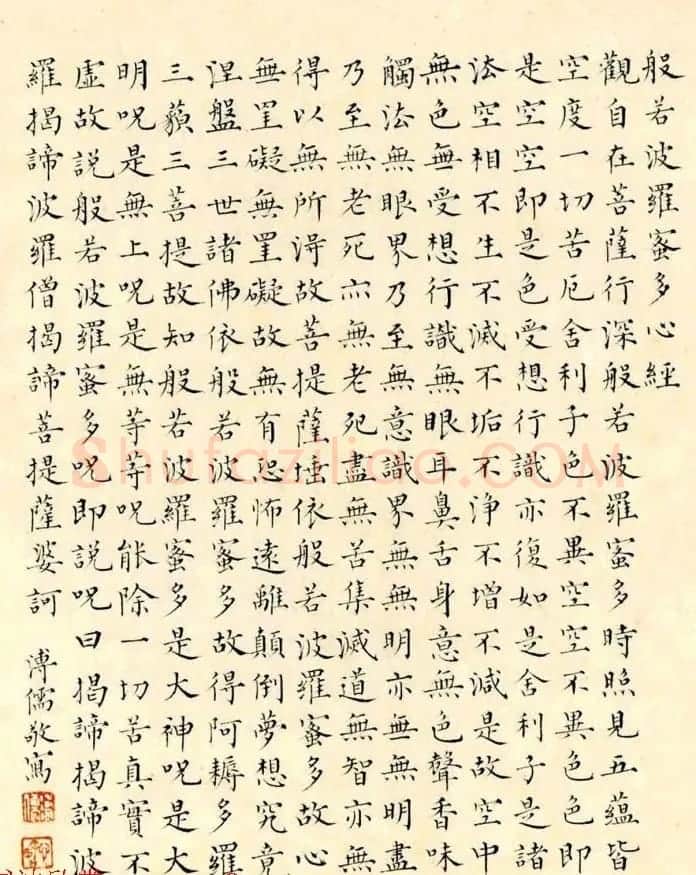 般若波羅蜜多心經
觀自在菩薩行深般若波羅蜜多時照見五蘊皆
空度一切苦厄舍利子色不異空空不異色色即
是空空即是色受想行識亦復如是舍利子是諸
法空相不生不滅不垢不淨不增不減是故空中
無色無受想行識無眼耳鼻舌身意無色聲香味
觸法無眼界乃至無意識界無無明亦無無明盡
乃至無老死亦無老死盡無苦集滅道無智亦無
得以無所得故菩提薩埵依般若波羅蜜多故心
無罣礙無罣礙故無有恐怖遠離顛倒夢想究竟
涅盤三世諸佛依般若波羅蜜多故得阿耨多羅
三藐三菩提故知般若波羅蜜多是大神呪是大
明呪是無上呪是無等等呪能除一切苦真實不
虛故說般若波羅蜜多呪即說呪曰揭諦揭諦波
羅揭諦波羅僧揭諦菩提薩婆訶 溥儒敬寫
Shufaziliao.COM